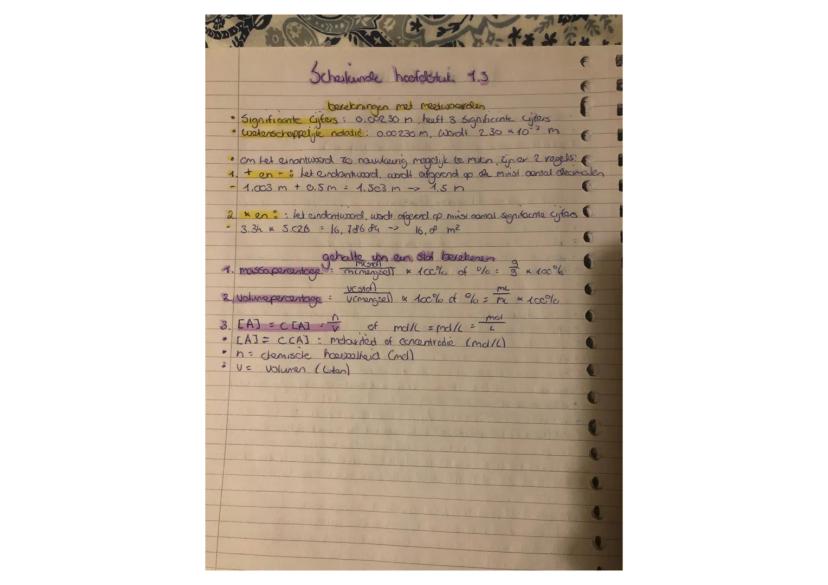 Scheikunde hoofdstuk 1.3
berekeningen met meetwaarden
• Significante cijfers : 0.00230 m, heeft 3 significante cijfers
• wetenschappelijke notatie : 0.00230 m, wordt 2.30 × 10⁻³ m
• om het eindantwoord zo nauwkeurig mogelijk te maken, zijn er 2 regels:
1. + en - : het eindantwoord, wordt afgerond op de minst aantal decimalen
- 1.003 m + 0.5 m = 1.503 m -> 1.5 m
2 × en : : het eindantwoord, wordt afgerond op minst aantal significante cijfers
- 3.34 × 5.026 = 16,78684 -> 16,8 m²
gehalte van een stof berekenen
1. massapercentage : m(stof) / m(mengsel) × 100% of % = g / g × 100%
2. volumepercentage : V(stof) / V(mengsel) × 100% of % = mL / mL × 100%
3. [A] = c[A] = n / V of mol/L = mol/L = mol / L
• [A] = c(A) : molariteit of concentratie (mol/L)
• n = chemische hoeveelheid (mol)
• V = volumen (Liter)